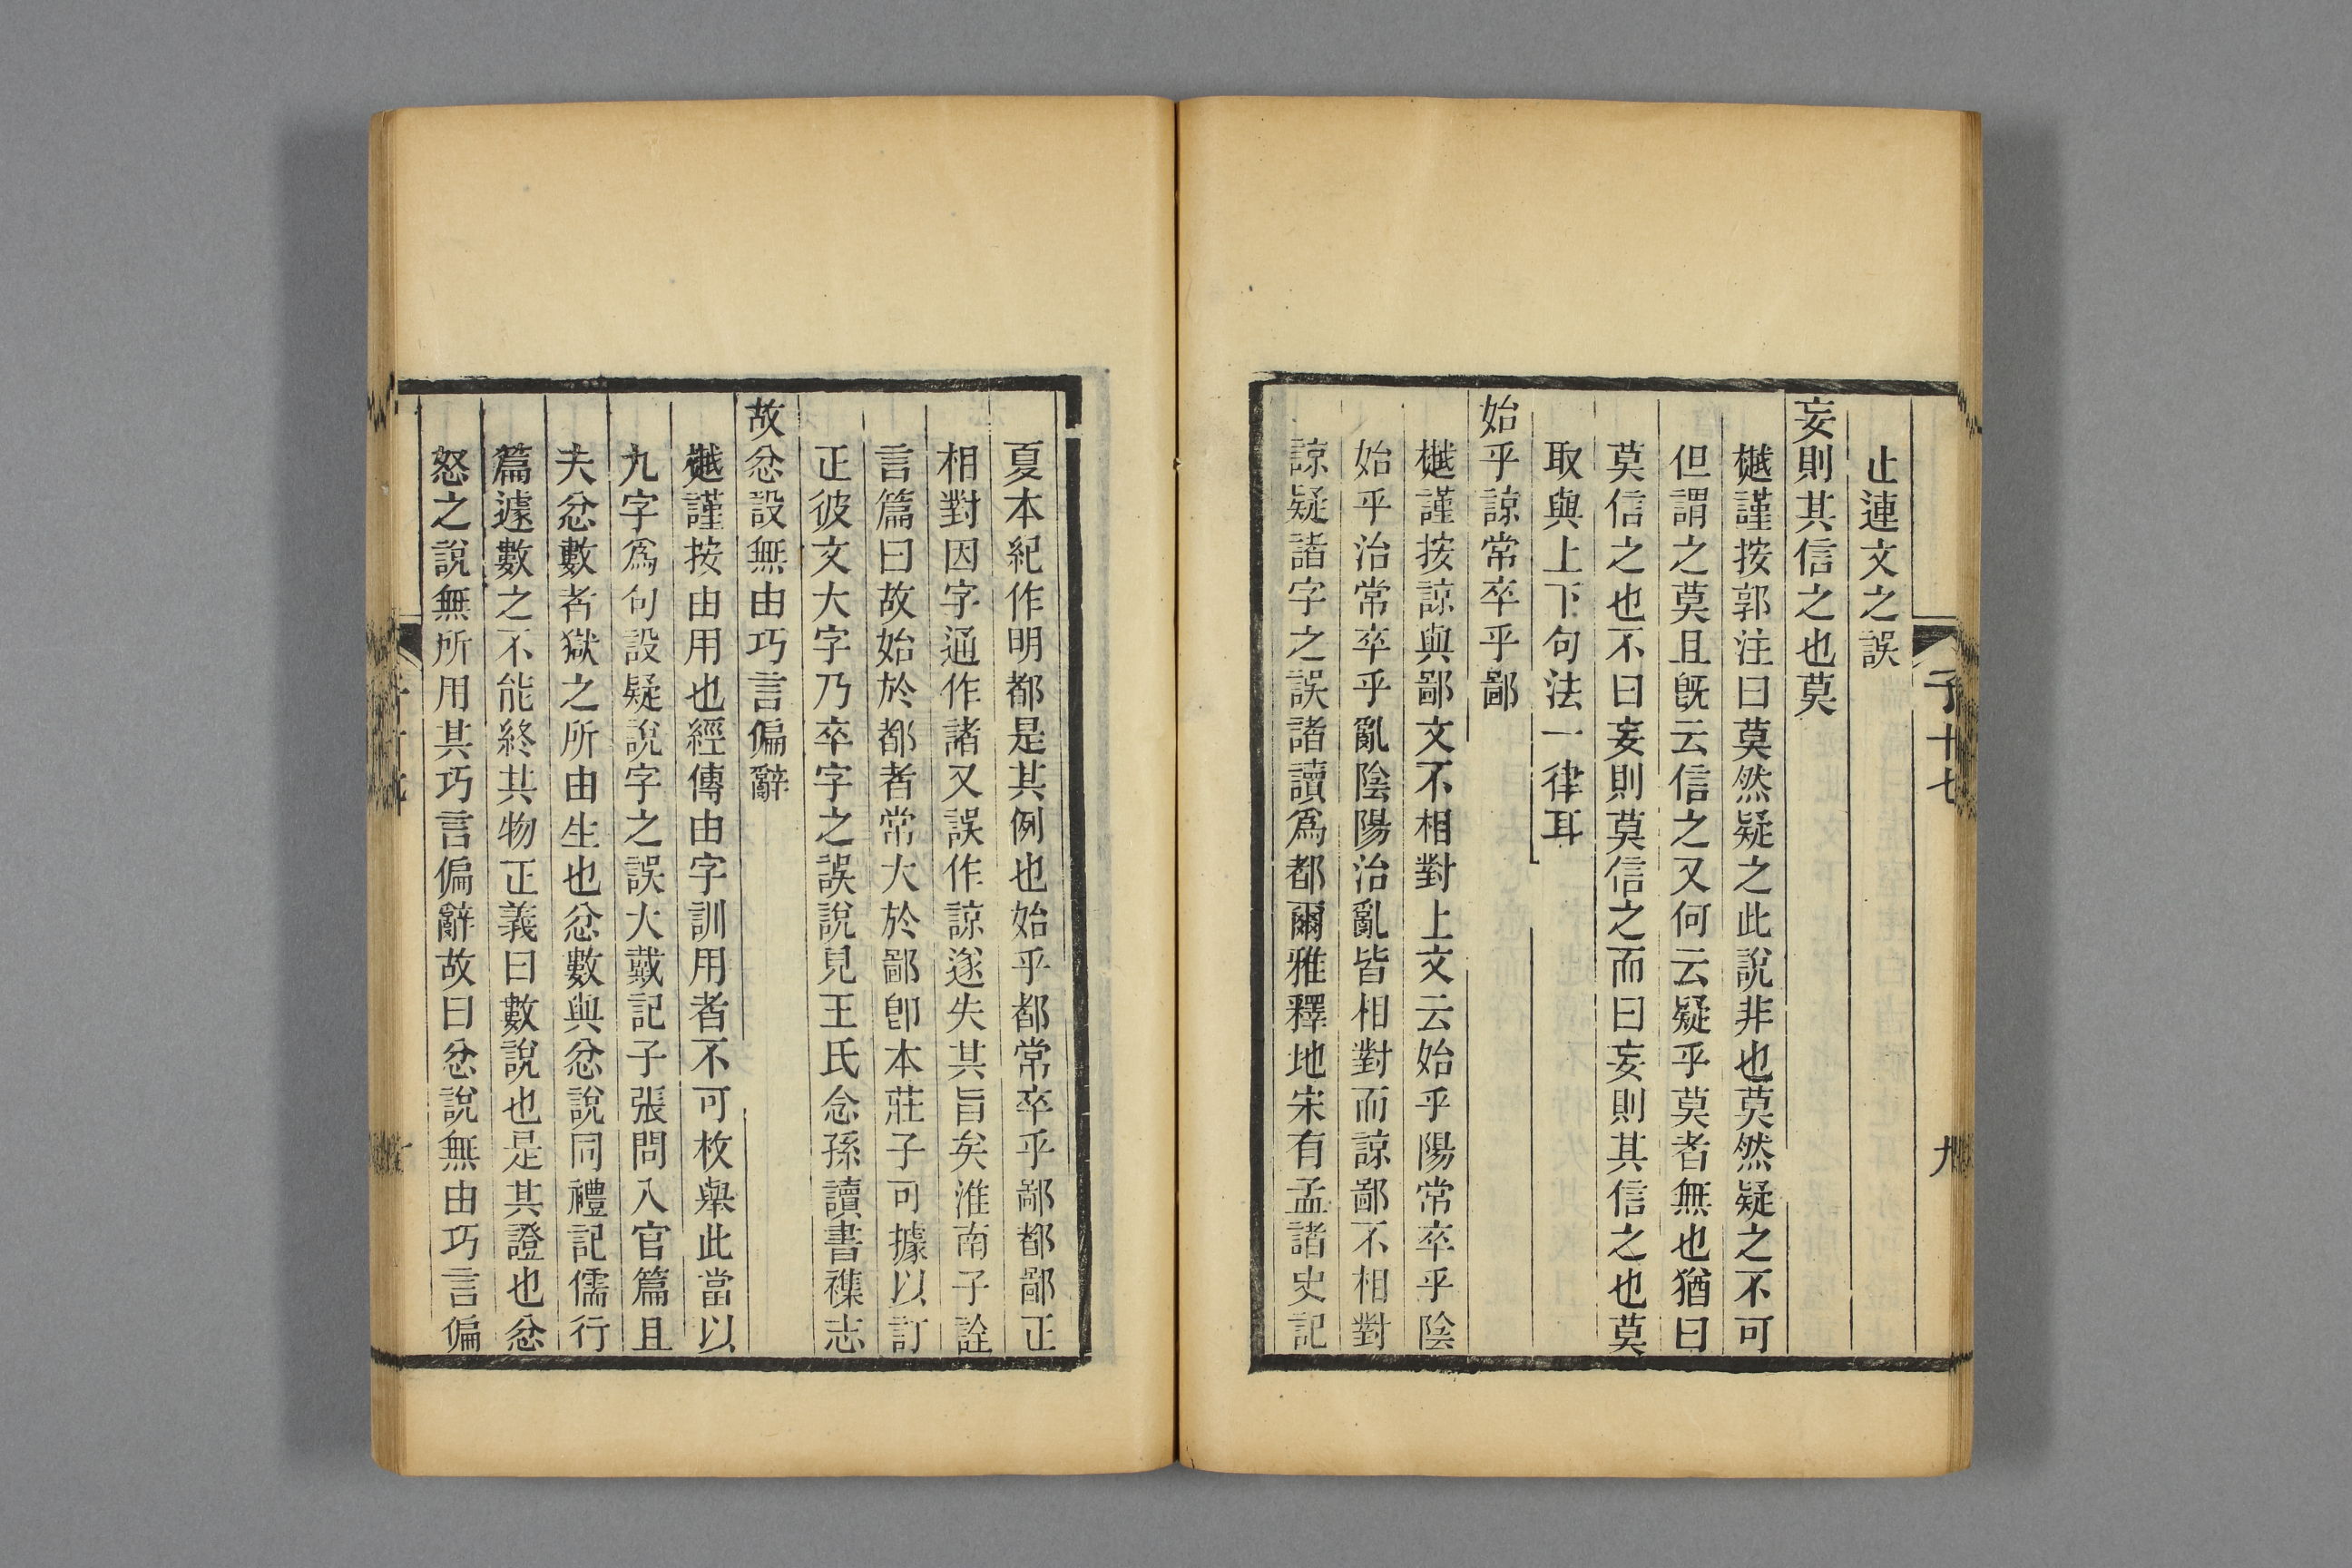 子十七
九
止連文之誤
妄則其信之也莫
樾謹按郭注曰莫然疑之此說非也莫然疑之不可
但謂之莫且旣云信之又何云疑乎莫者無也猶曰
莫信之也不曰妄則莫信之而曰妄則其信之也莫
取與上下句法一律耳
始乎諒常卒乎鄙
樾謹按諒與鄙文不相對上文云始乎陽常卒乎陰
始乎治常卒乎亂陰陽治亂皆相對而諒鄙不相對
諒疑諸字之誤諸讀爲都爾雅釋地宋有孟諸史記
夏本紀作明都是其例也始乎都常卒乎鄙都鄙正
相對因字通作諸又誤作諒遂失其旨矣淮南子詮
言篇曰故始於都者常大於鄙卽本莊子可據以訂
正彼文大字乃卒字之誤說見王氏念孫讀書襍志
故忿設無由巧言偏辭
樾謹按由用也經傳由字訓用者不可枚舉此當以
九字爲句設疑說字之誤大戴記子張問入官篇且
夫忿數者獄之所由生也忿數與忿說同禮記儒行
篇遽數之不能終其物正義曰數說也是其證也忿
怒之說無所用其巧言偏辭故曰忿說無由巧言偏